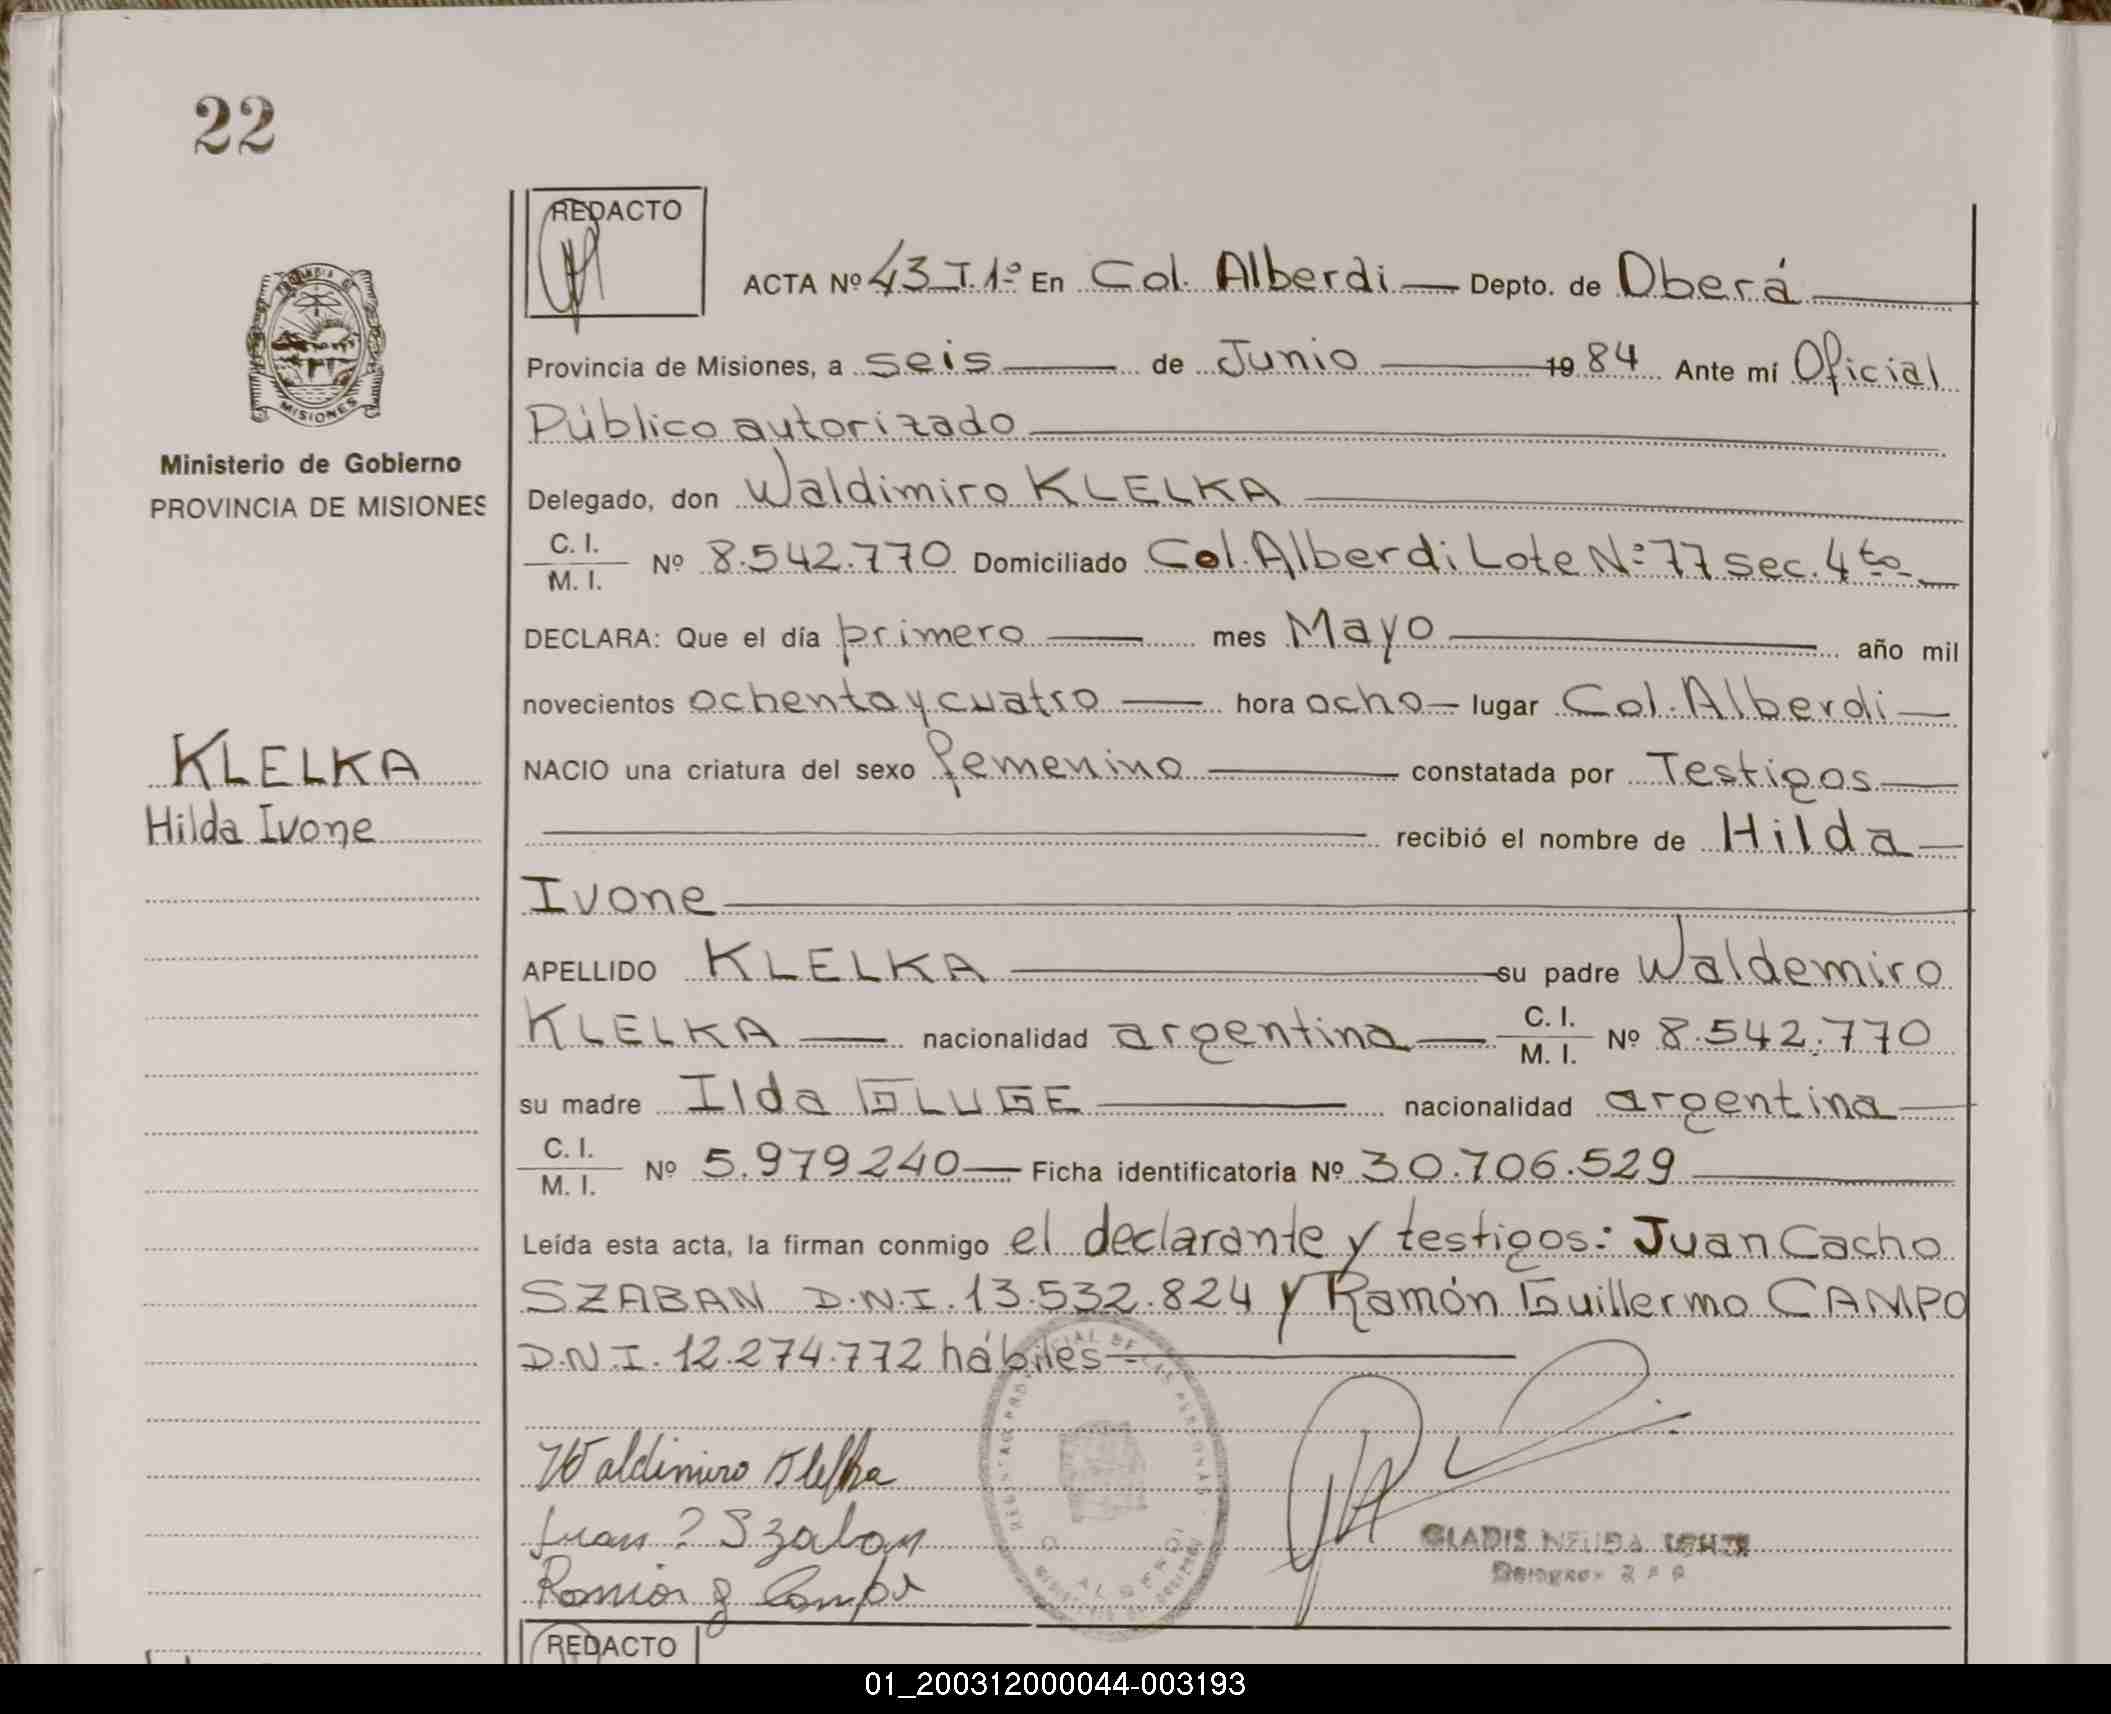 22
REDACTO
ACTA Nº 43 T.1º En Col. Alberdi Depto. de Oberá
Provincia de Misiones, a seis de Junio 1984 Ante mí Oficial
Público autorizado
MISIONES
Ministerio de Gobierno
PROVINCIA DE MISIONES
Delegado, don Waldimiro KLELKA
C. I.
M. I. Nº 8.542.770 Domiciliado Col. Alberdi Lote Nº 77 sec. 4to
DECLARA: Que el día primero mes Mayo año mil
novecientos ochenta y cuatro hora ocho lugar Col. Alberdi
KLELKA
Hilda Ivone
NACIO una criatura del sexo femenino constatada por Testigos
recibió el nombre de Hilda
Ivone
APELLIDO KLELKA su padre Waldemiro
KLELKA nacionalidad argentina C. I. M. I. Nº 8.542.770
su madre Ilda GLUGE nacionalidad argentina
C. I.
M. I. Nº 5.979240 Ficha identificatoria Nº 30.706.529
Leída esta acta, la firman conmigo el declarante y testigos: Juan Cacho
SZABAN D.N.I. 13.532.824 y Ramón Guillermo CAMPO
D.N.I. 12.274.772 hábiles
Waldimiro Klelka
Juan Szaban
Ramón G Campo
GLADIS
REDACTO
01_200312000044-003193